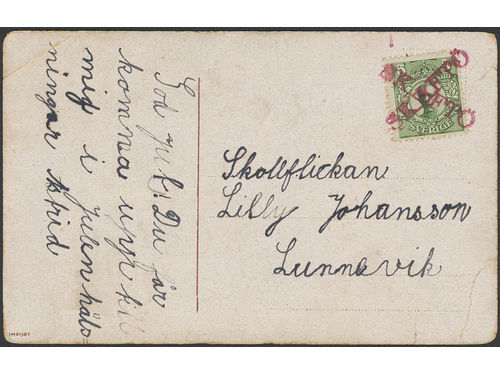 God jul! Du får
komma upp till
mig i julen häls=
ningar Astrid
Skollflickan
Lilly Johansson
Lunnevik
SVERIGE
IMPORT